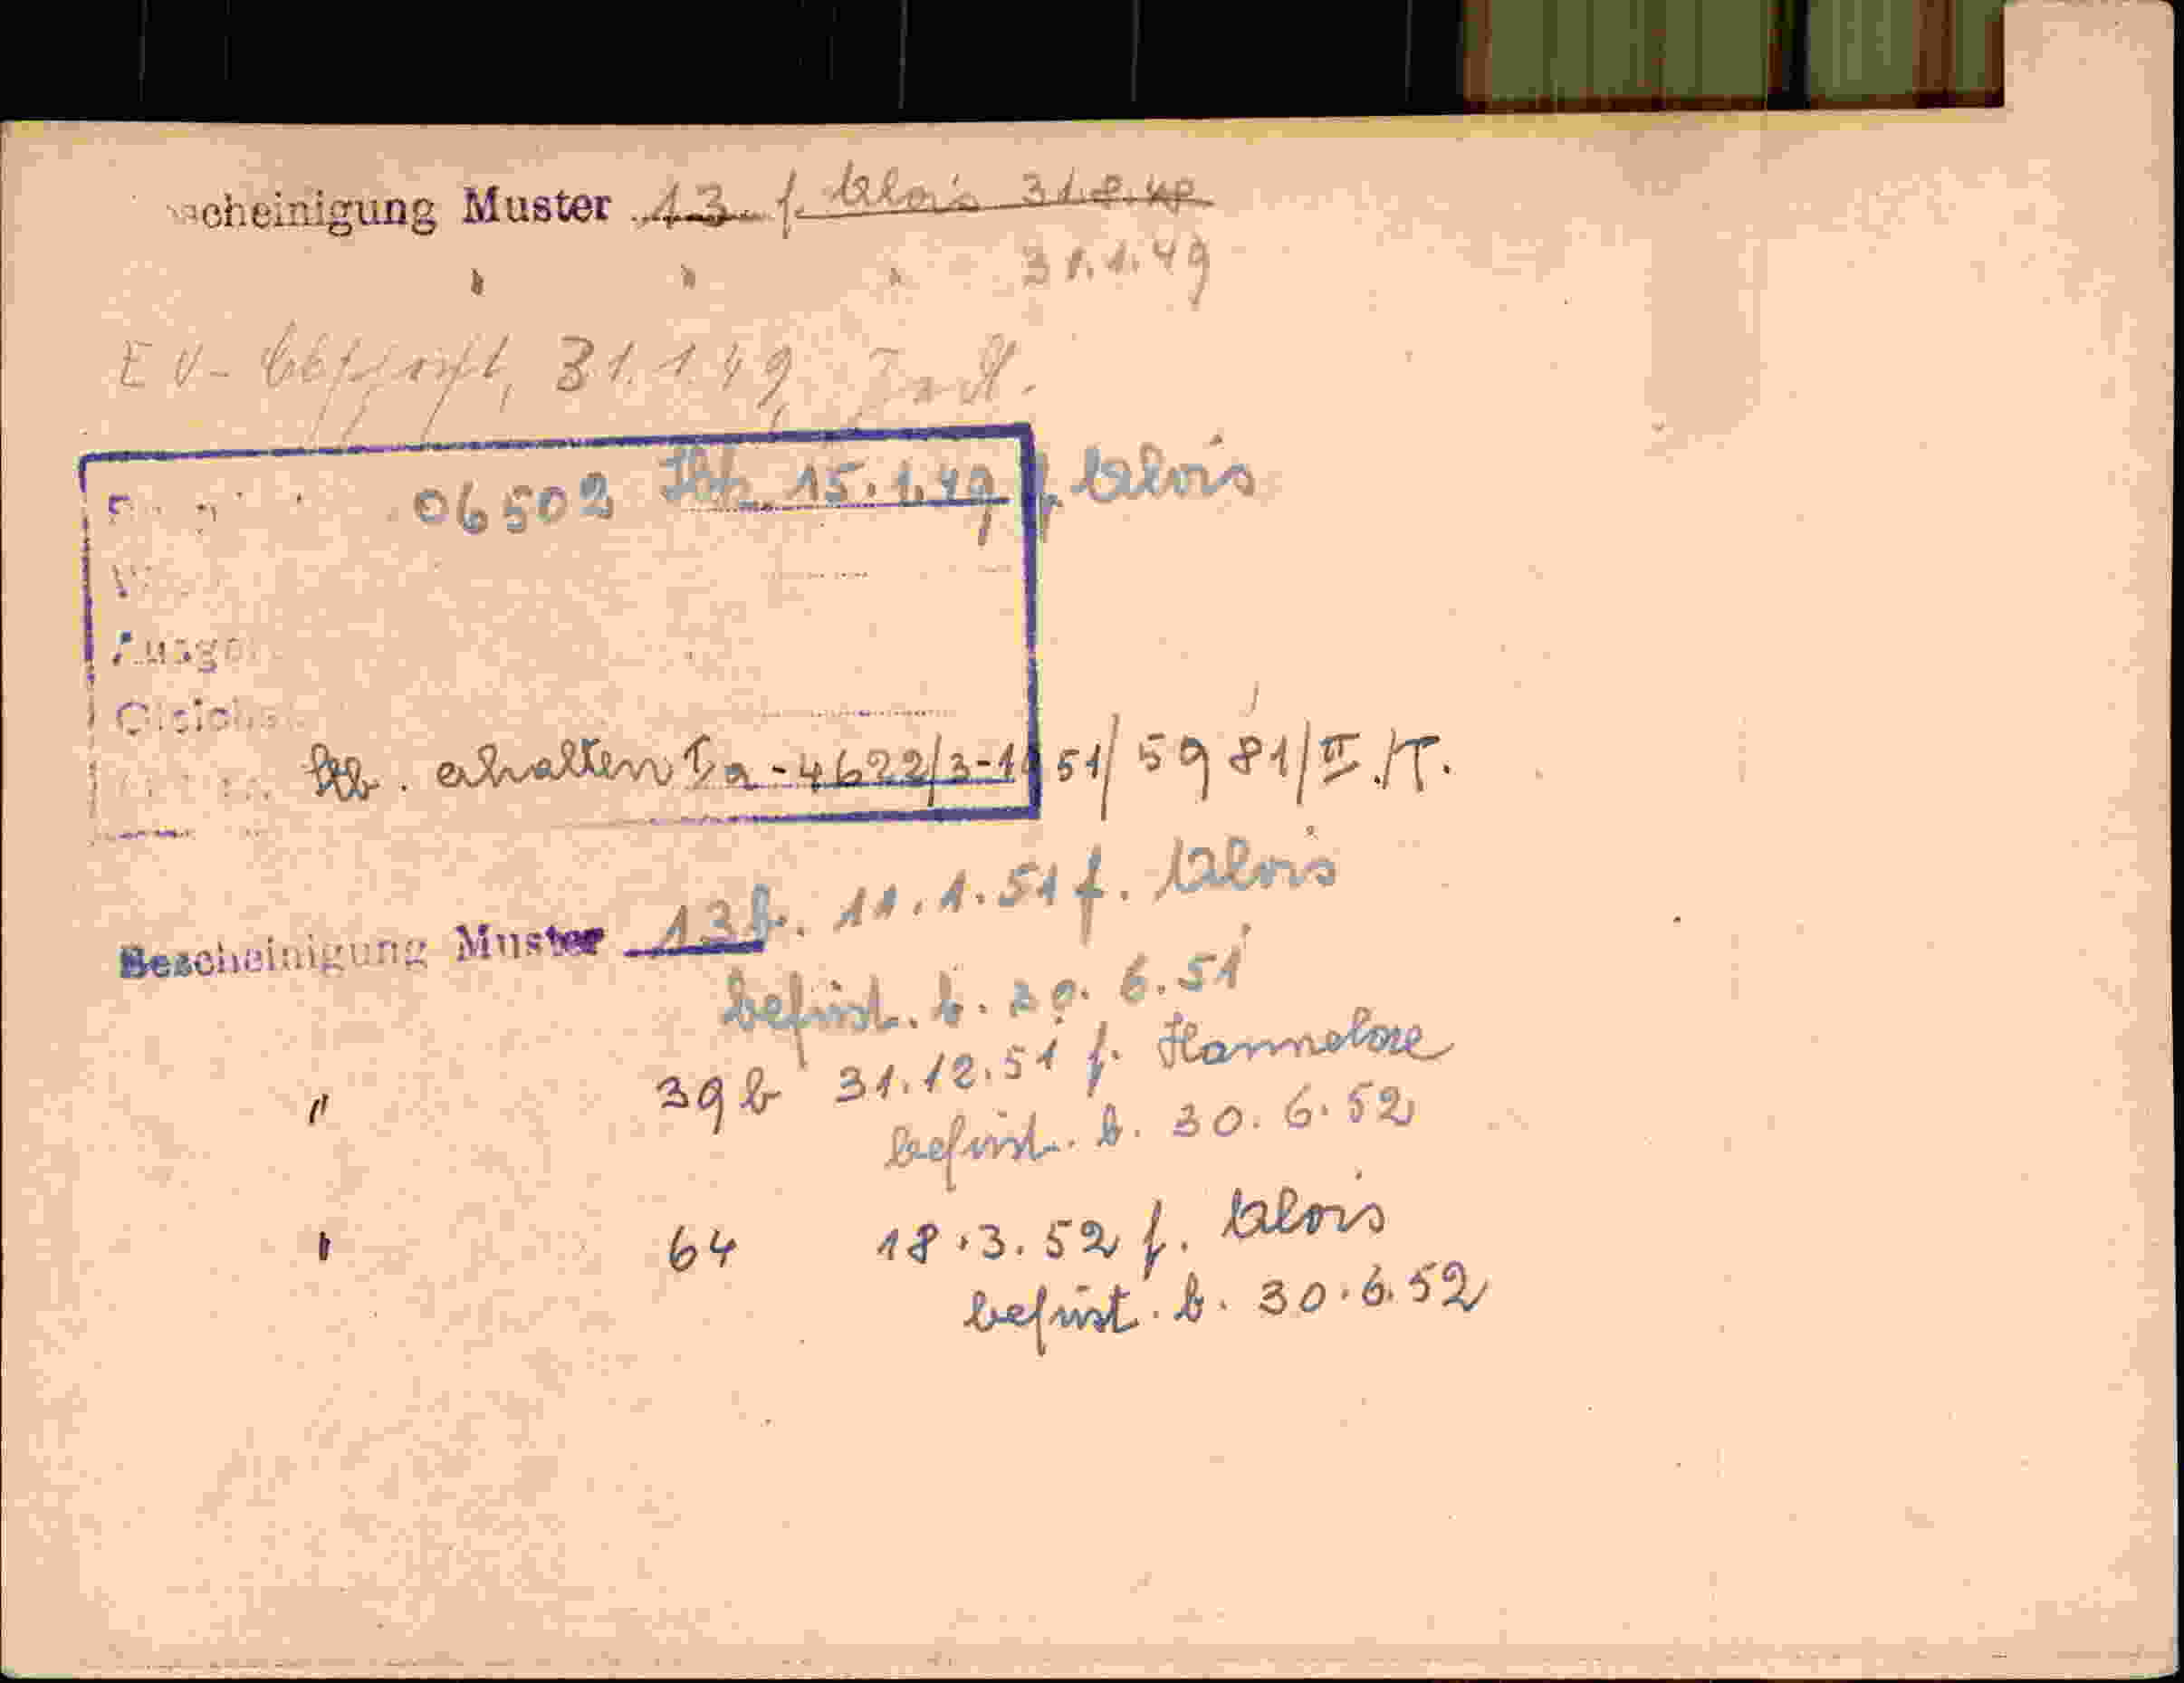 scheinigung Muster 13. f. Alois 31.8.48
" " " 31.1.49
EV- 31.1.49
06502 15.1.49 f. Alois
Ausg
Gleich
erhalten 4622/3-1 51/5981/II./T.
Bescheinigung Muster 13f. 11.1.51 f. Alois
befrist. b. 30.6.51
" 39b 31.12.51 f. Hannelore
befrist. b. 30.6.52
" 64 18.3.52 f. Alois
befrist. b. 30.6.52